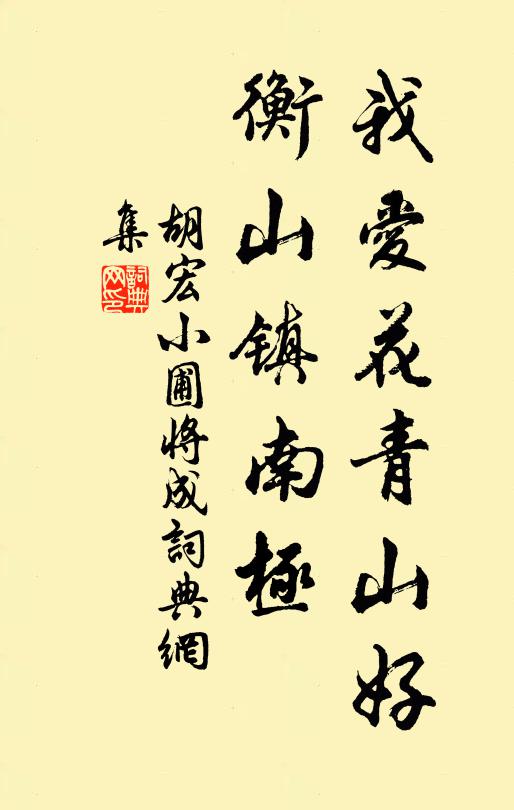 我愛花青山好
衡山镇南極
胡宏小圃將成詞典網
集
詞典
网印